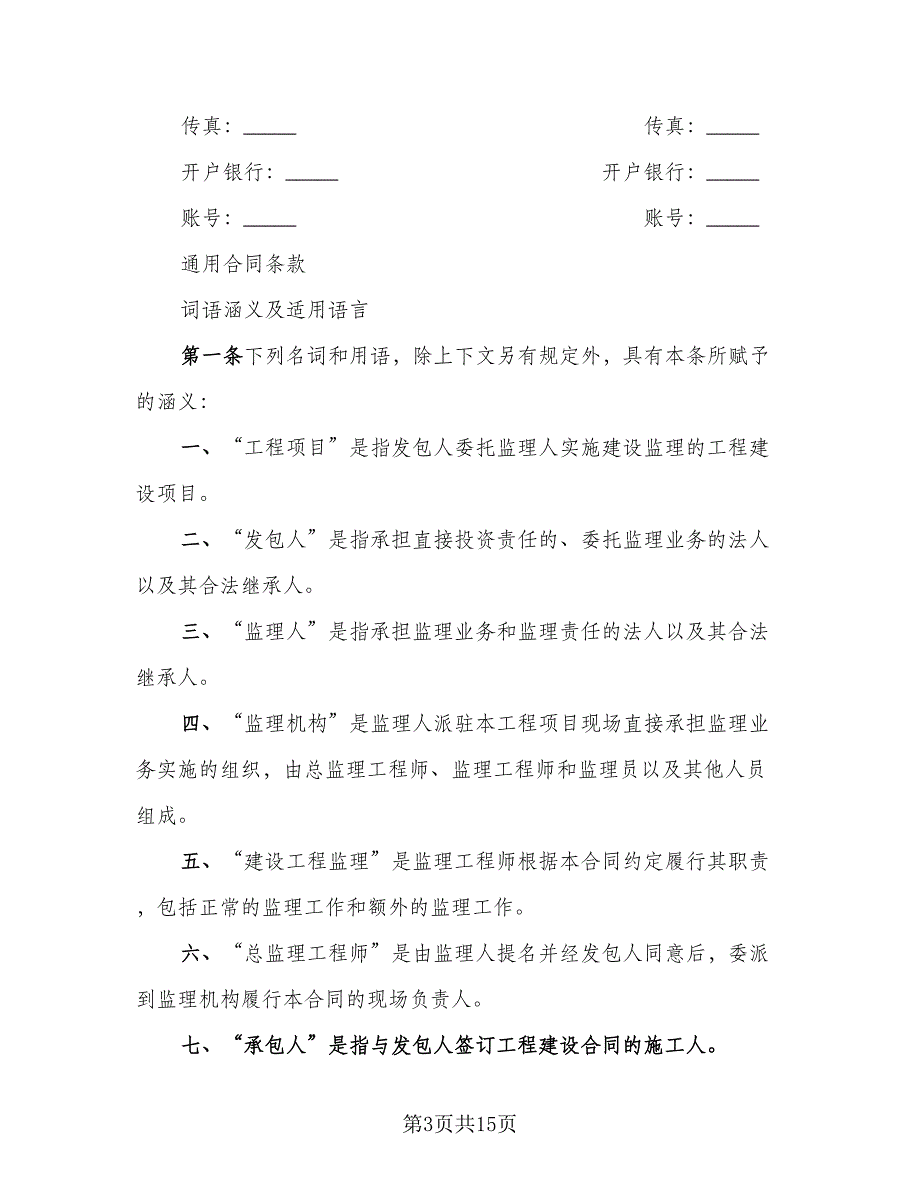 传真：_____ 传真：_____
开户银行：_____ 开户银行：_____
账号：_____ 账号：_____
通用合同条款
词语涵义及适用语言
第一条下列名词和用语，除上下文另有规定外，具有本条所赋予
的涵义：
一、“工程项目”是指发包人委托监理人实施建设监理的工程建
设项目。
二、“发包人”是指承担直接投资责任的、委托监理业务的法人
以及其合法继承人。
三、“监理人”是指承担监理业务和监理责任的法人以及其合法
继承人。
四、“监理机构”是监理人派驻本工程项目现场直接承担监理业
务实施的组织，由总监理工程师、监理工程师和监理员以及其他人员
组成。
五、“建设工程监理”是监理工程师根据本合同约定履行其职责
，包括正常的监理工作和额外的监理工作。
六、“总监理工程师”是由监理人提名并经发包人同意后，委派
到监理机构履行本合同的现场负责人。
七、“承包人”是指与发包人签订工程建设合同的施工人。
第3页共15页